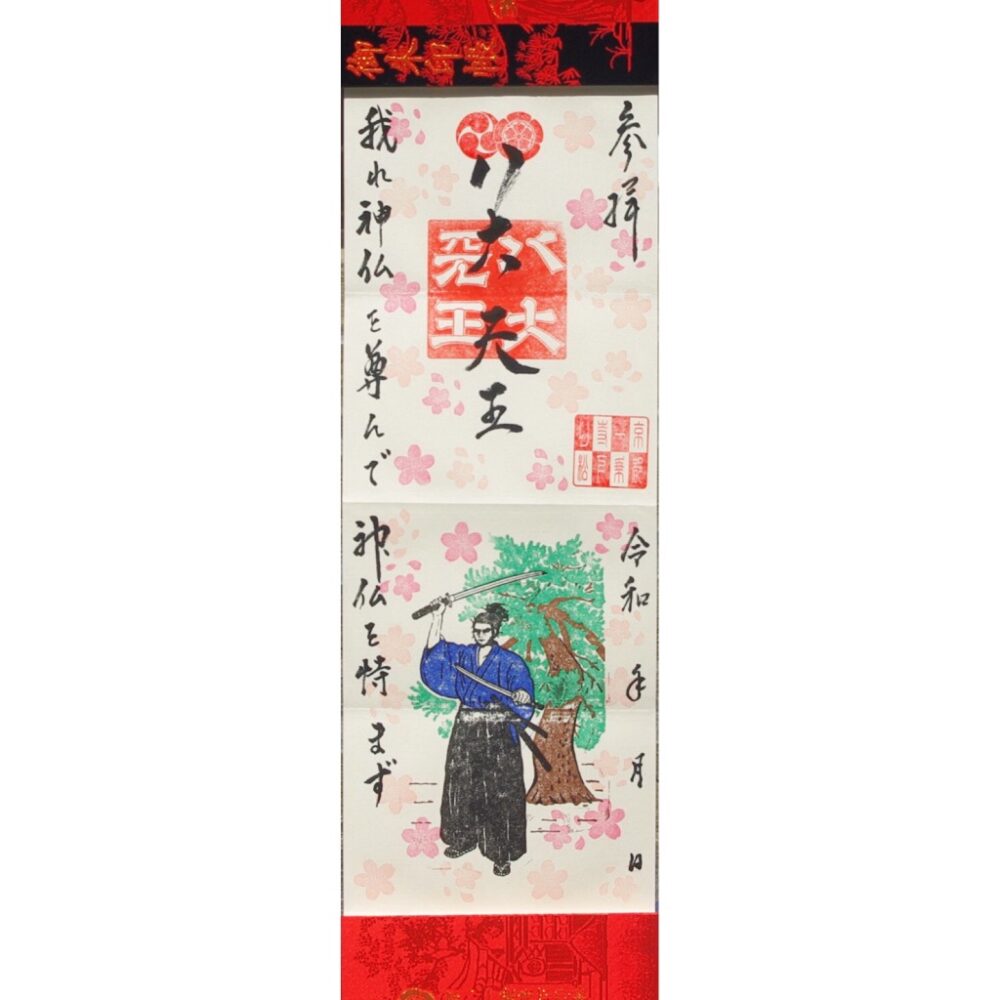 御朱印帳
参拝
八大天王
八大天王
京都一乗寺下り松
令和 年 月 日
我れ神仏を尊んで
神仏を恃まず